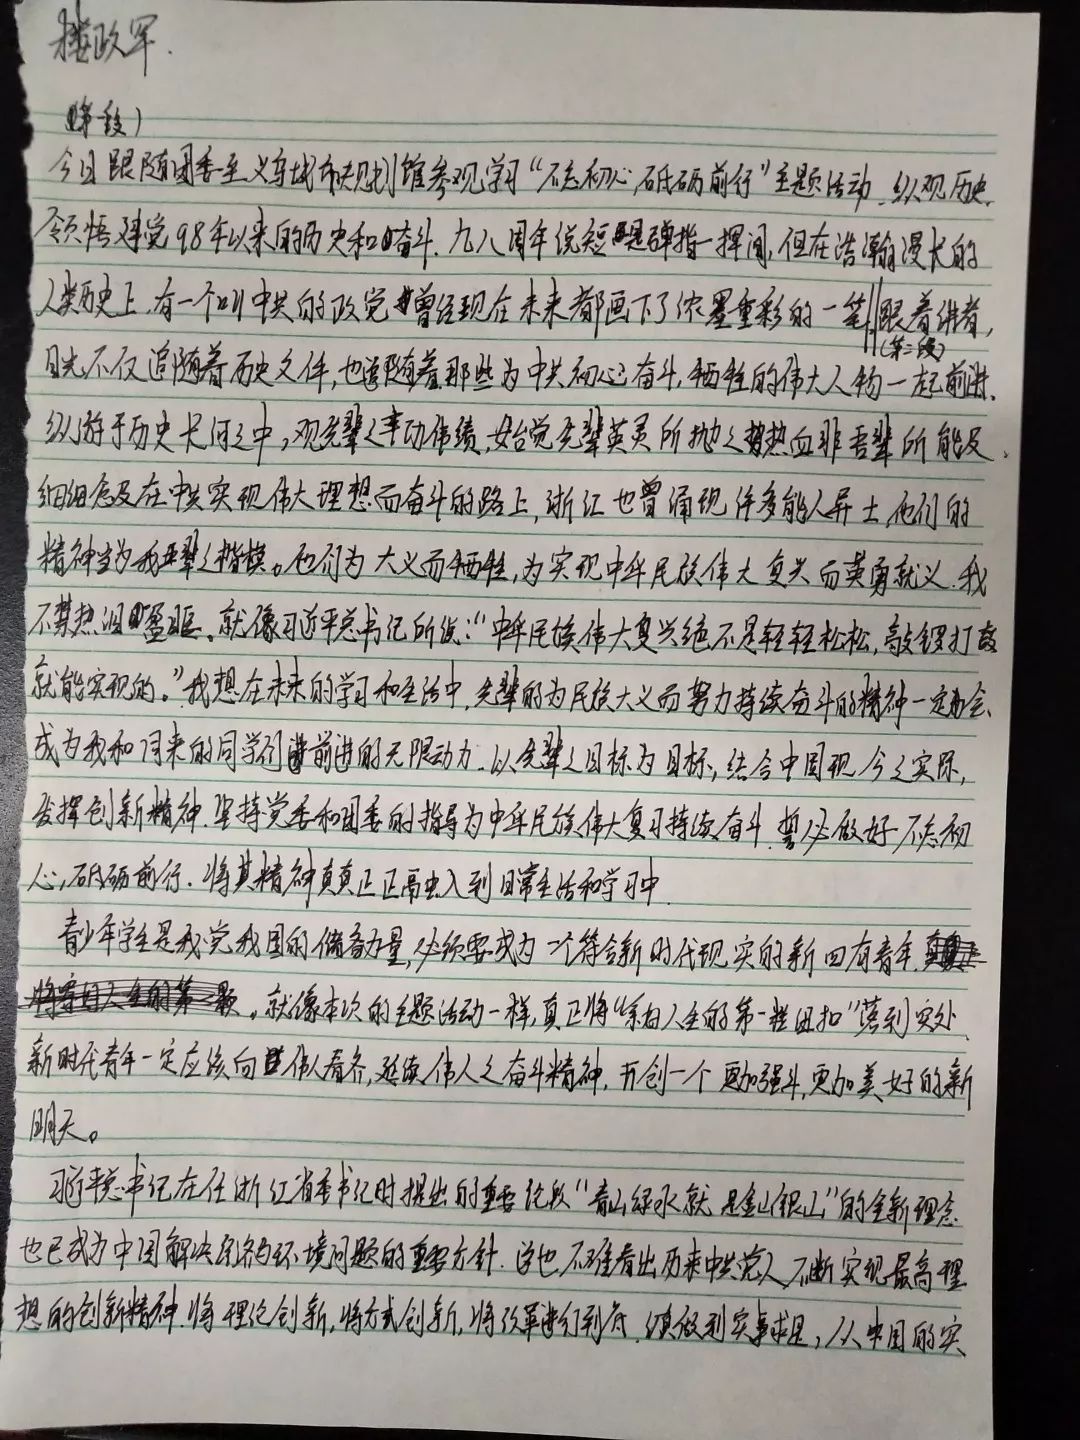 楼政军.
(第一段)
今日跟随团委至义乌城市规划馆参观学习“不忘初心 砥砺前行”主题活动.纵观历史,
领悟建党98年以来的历史和奋斗.九八周年说短是弹指一挥间,但在浩瀚漫长的
人类历史上.有一个叫中共的政党曾经现在未来都画下了浓墨重彩的一笔.跟着讲者,
(第二段)
目光不仅追随着历史文件,也追随着那些为中共初心奋斗,牺牲的伟大人物一起前进.
纵游于历史长河之中,观先辈之丰功伟绩,始觉先辈英灵所抛之热血非吾辈所能及.
细细念及在中共实现伟大理想而奋斗的路上,浙江也曾涌现许多能人异士,他们的
精神当为我辈之楷模。他们为大义而牺牲,为实现中华民族伟大复兴而英勇就义.我
不禁热泪盈眶。就像习近平总书记所说:“中华民族伟大复兴绝不是轻轻松松,敲锣打鼓
就能实现的。”我想在未来的学习和生活中,先辈的为民族大义而努力持续奋斗的精神一定会
成为我和同来的同学们前进的无限动力.以先辈之目标为目标,结合中国现今之实际,
发挥创新精神.坚持党委和团委的指导为中华民族伟大复习持续奋斗.誓必做好不忘初
心,砥砺前行.将其精神真真正正融入到日常生活和学习中
青少年学生是我党我国的储备力量,必须要成为一个符合新时代现实的新四有青年.
。就像本次的主题活动一样,真正将“系扣人生的第一粒纽扣”落到实处.
新时代青年一定应该向伟人看齐,延续伟人之奋斗精神,开创一个更加强斗,更加美好的新
明天。
习近平总书记在任浙江省委书记时提出的重要论段“青山绿水就是金山银山”的全新理念
也已成为中国解决国内环境问题的重要方针.这也不难看出历来中共党人不断实现最高理
想的创新精神.将理论创新,将方式创新,将改革进行到底.须做到实事求是,从中国的实